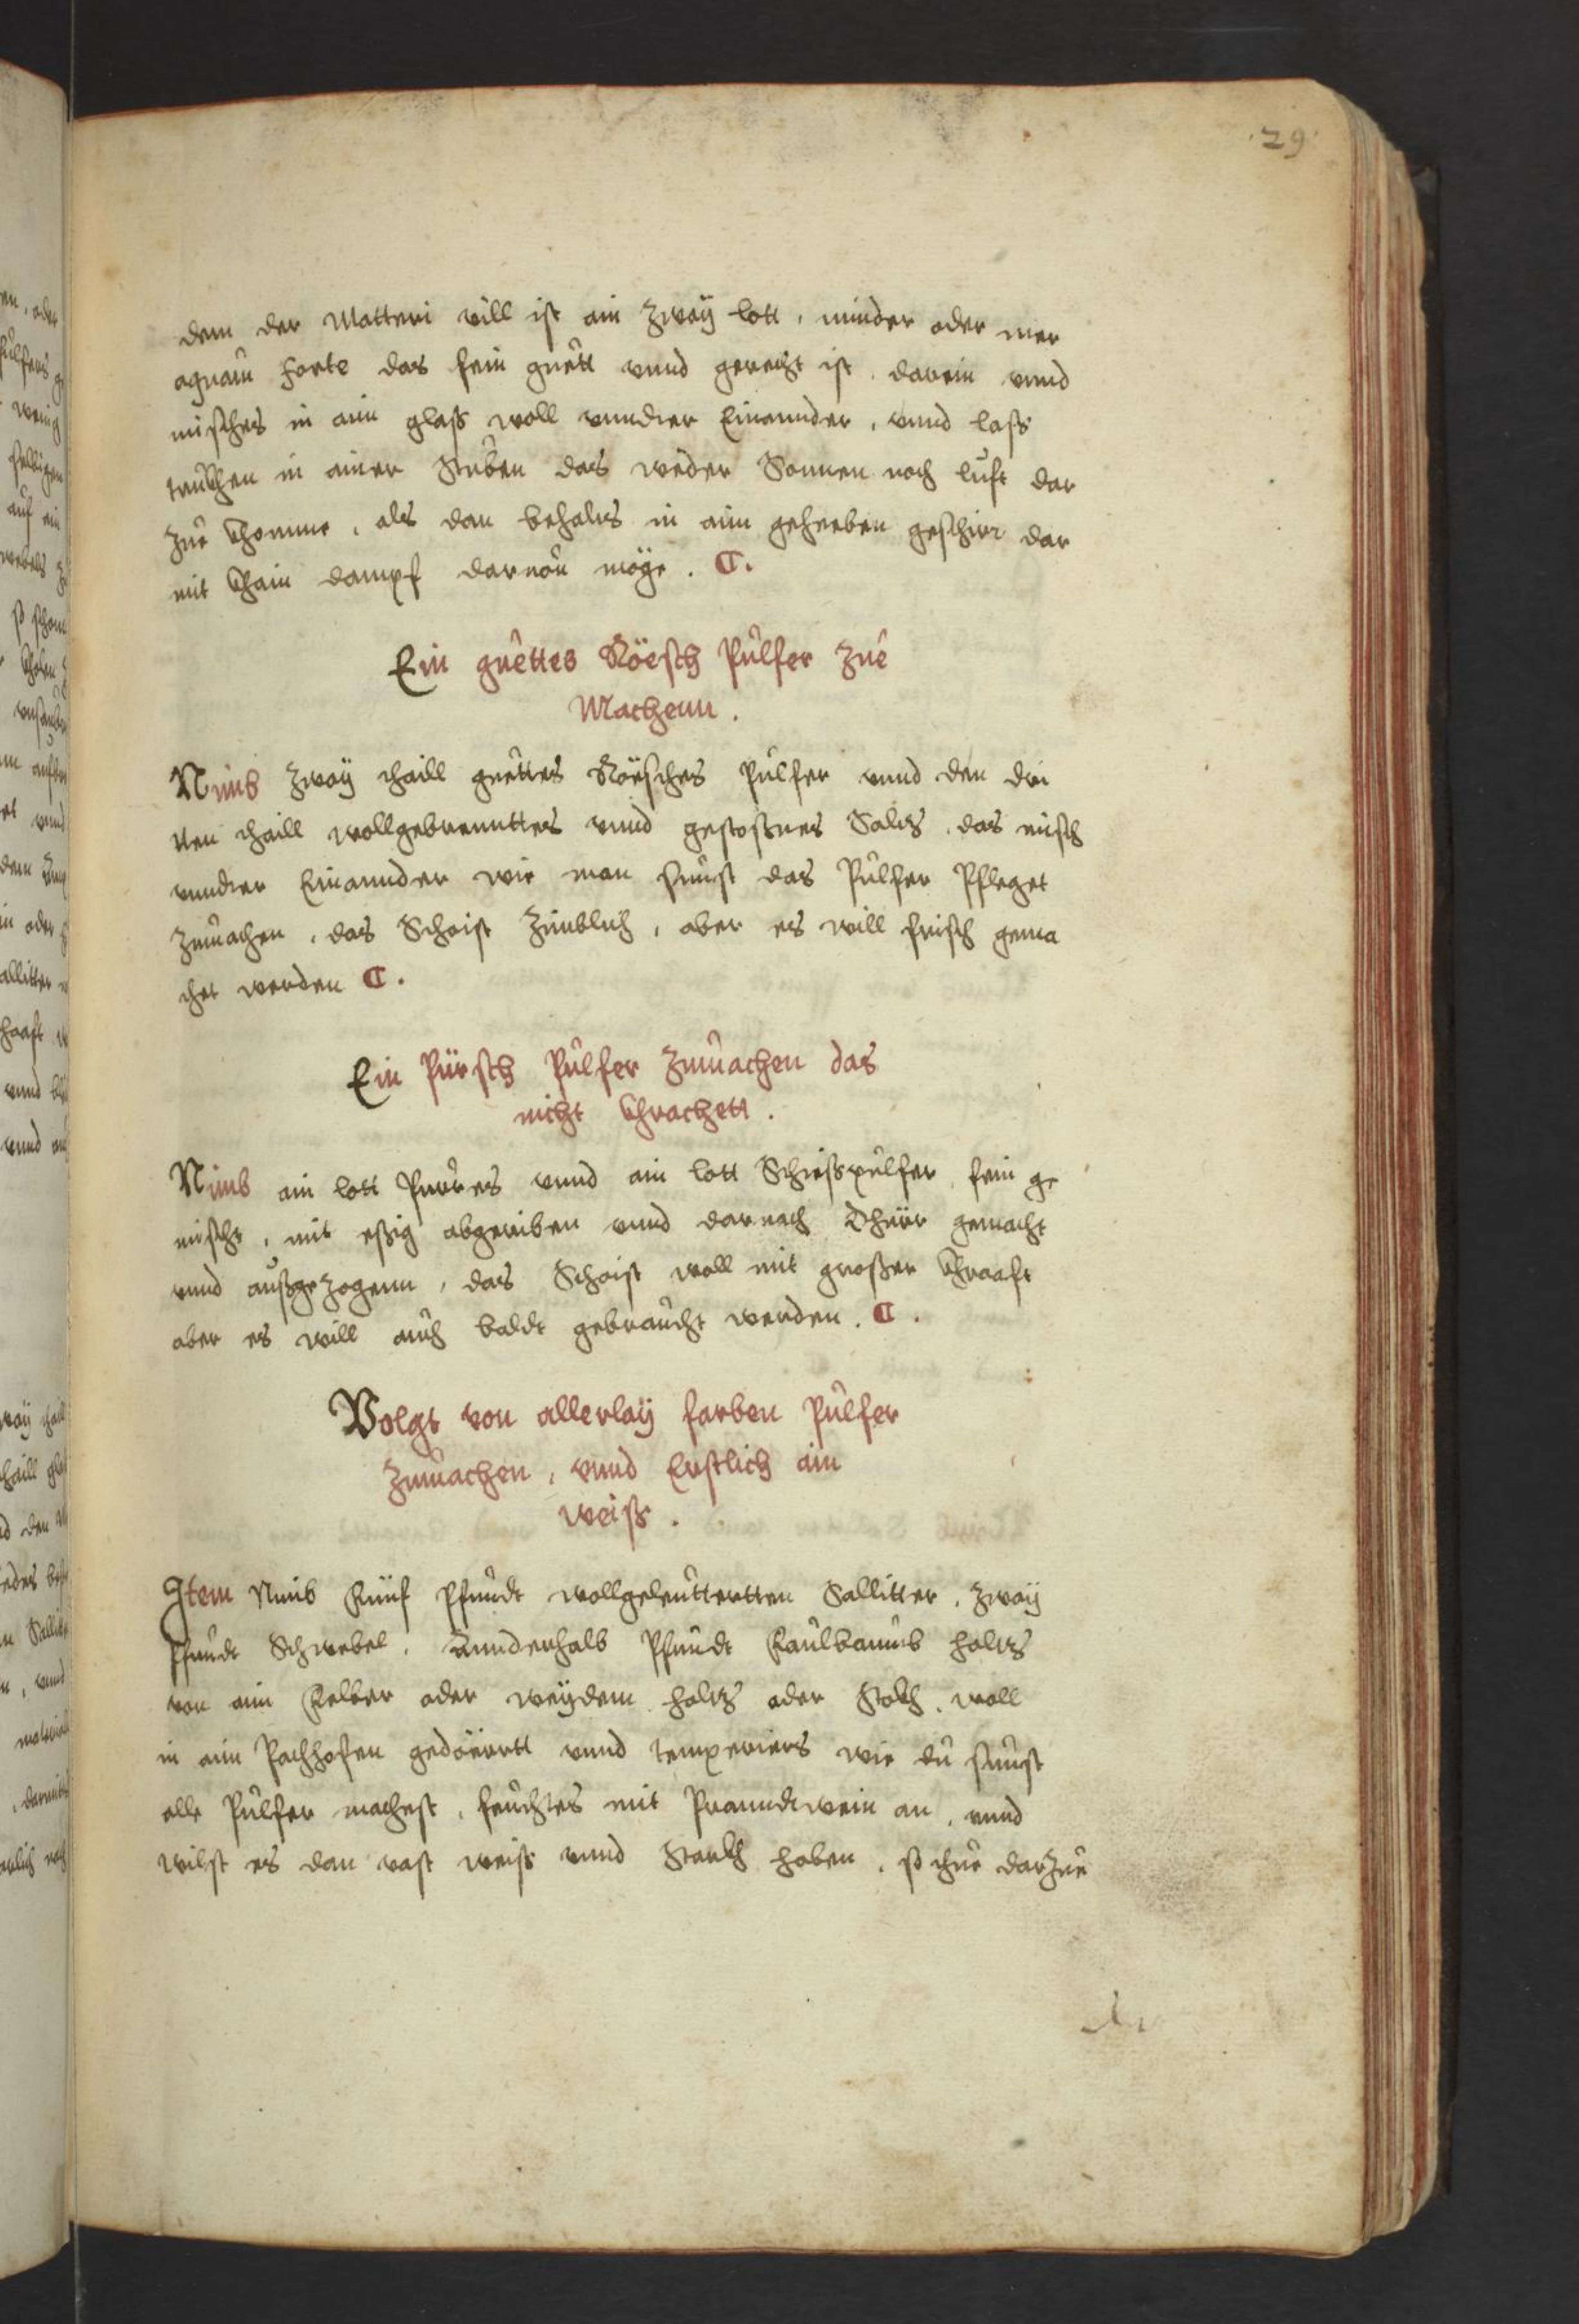 29
dem der Matteri vill ist ain zwaÿ lott, minder oder mer
aquam forte das fein guett vnnd gerecht ist, darein vnnd
misches in ain glaß woll vnnder Einannder, vnnd laß
trukhen in ainer Stuben das weder Sonnen noch luft dar
zue khomme, als dan behalts in aim geheeben geschirr dar
mit khain dampf daruon möge. C.
Ein guettes Röesch Pulfer zue
Machenn.
Nimb zwaÿ thaill guettes Röesches Pulfer vnnd den dri
tten thaill wollgebrenntters vnnd gestoßnes Saltz, das misch
vnnder Einannder wie man sunst das Pulfer Pfleget
zmachen, das Scheist zimblich, aber es will frisch gema
chet werden C.
Ein Pürsch Pulfer zmachen das
nicht khrachett.
Nimb ain lott Pures vnnd ain lott Schießpulfer, fein ge
mischt, mit eßig abgeriben vnnd darnach dhürr gemacht
vnnd außgezogenn, das Scheist woll mit großer khraaft
aber es will auch baldt gebraucht werden. C.
Volgt von allerlaÿ farben Pulfer
zmachen, vnnd Erstlich ain
weiß.
Item Nimb Fünf Pfundt wollgeleuttertten Sallitter, zwaÿ
Pfundt Schwebel, Annderhalb Pfundt Faulbaumb holtz
von aim Felber oder weÿdem holtz oder Stokh, woll
in aim Pachhofen gedöerrtt vnnd temperiers wie du sunst
alle Pulfer machest, feuchtes mit Pranndtwein an, vnnd
wilst es dan vast weiß vnnd Starkh haben, so thue darzue